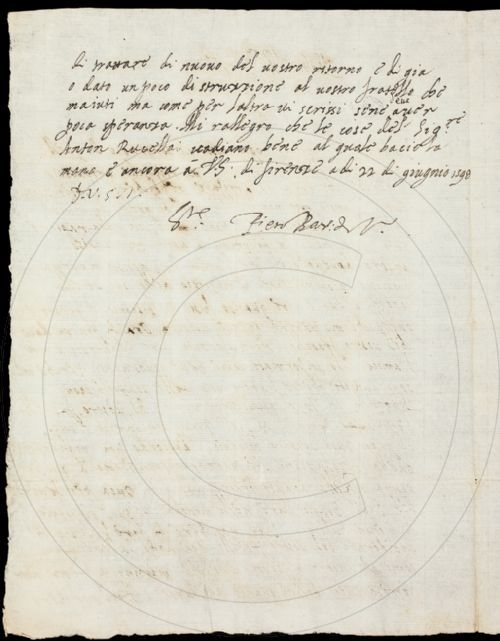 di trattare di nuovo del vostro ritorno e di gia
o dato un poco di struzzione al vostro fratello che
m'aiuti ma come per l'altra vi scrissi sene deve aver
poca speranza. Mi rallegro che le cose del Sig.re
Anton vadiano bene al quale bacio la
mano e ancora a V.S. di firenze adi 22 di giugnio 1598
D.V.S.
Piero